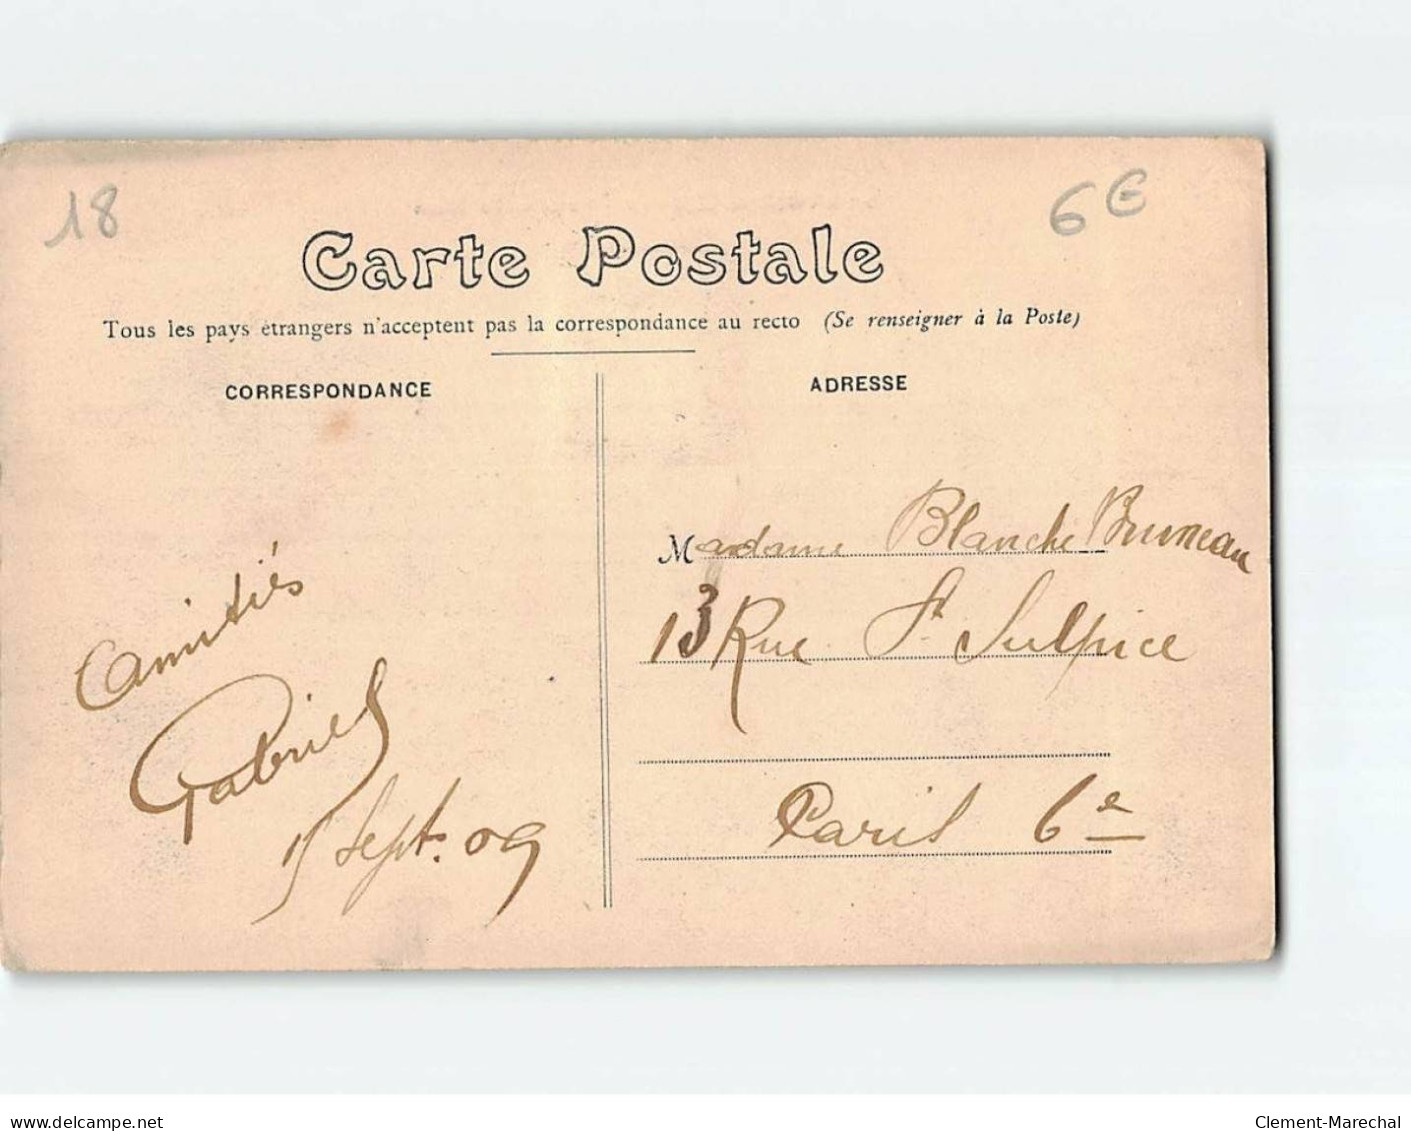 18
6€
Carte Postale
Tous les pays étrangers n'acceptent pas la correspondance au recto (Se renseigner à la Poste)
CORRESPONDANCE
ADRESSE
Amitiés
Gabriel
15 Sept. 09
Madame Blanche Bruneau
13 Rue St Sulpice
Paris 6e
www.delcampe.net
Clement-Marechal